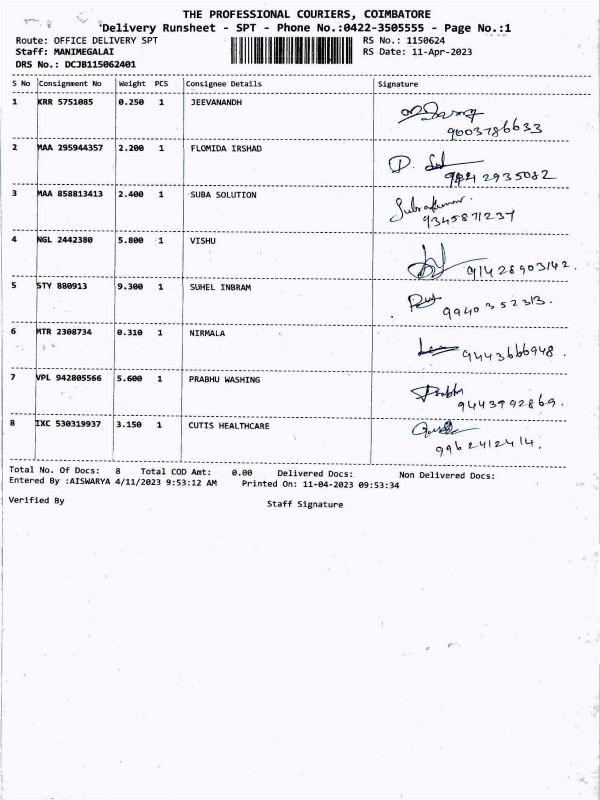 THE PROFESSIONAL COURIERS, COIMBATORE
Delivery Runsheet - SPT - Phone No.:0422-3505555 - Page No.:1
Route: OFFICE DELIVERY SPT RS No.: 1150624
Staff: MANIMEGALAI RS Date: 11-Apr-2023
DRS No.: DCJB115062401
S No Consignment No Weight PCS Consignee Details Signature
1 KRR 5751085 0.250 1 JEEVANANDH
9003786633
2 MAA 295944357 2.200 1 FLOMIDA IRSHAD
2935082
3 MAA 858813413 2.400 1 SUBA SOLUTION
9345871237
4 NGL 2442380 5.800 1 VISHU
91428903142.
5 STY 880913 9.300 1 SUHEL INBRAM
9940352313.
6 MTR 2308734 0.310 1 NIRMALA
9443666948.
7 VPL 942805566 5.600 1 PRABHU WASHING
Prabhu
9443992869.
8 IXC 530319937 3.150 1 CUTIS HEALTHCARE
9962412414.
Total No. Of Docs: 8 Total COD Amt: 0.00 Delivered Docs: Non Delivered Docs:
Entered By :AISWARYA 4/11/2023 9:53:12 AM Printed On: 11-04-2023 09:53:34
Verified By Staff Signature